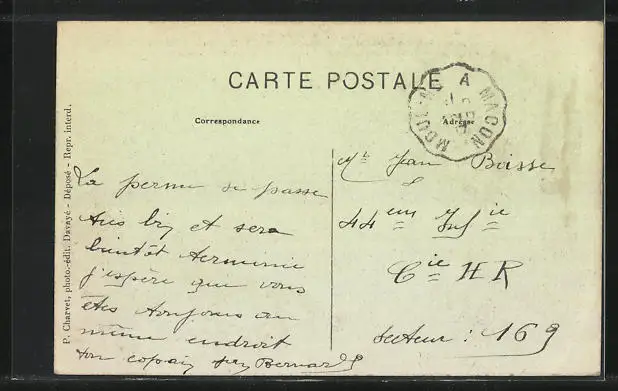 CARTE POSTALE
MOULINS A MACON
Correspondance
Adresse
P. Charvet, photo-édit. Davayé - Déposé - Repr. interd.
La perme se passe
très bien et sera
bientôt terminée
j'espère que vous
êtes toujours au
même endroit
ton copain Bernard
Mr Jean Boisse
44eme Infie
Cie H R
Secteur : 169